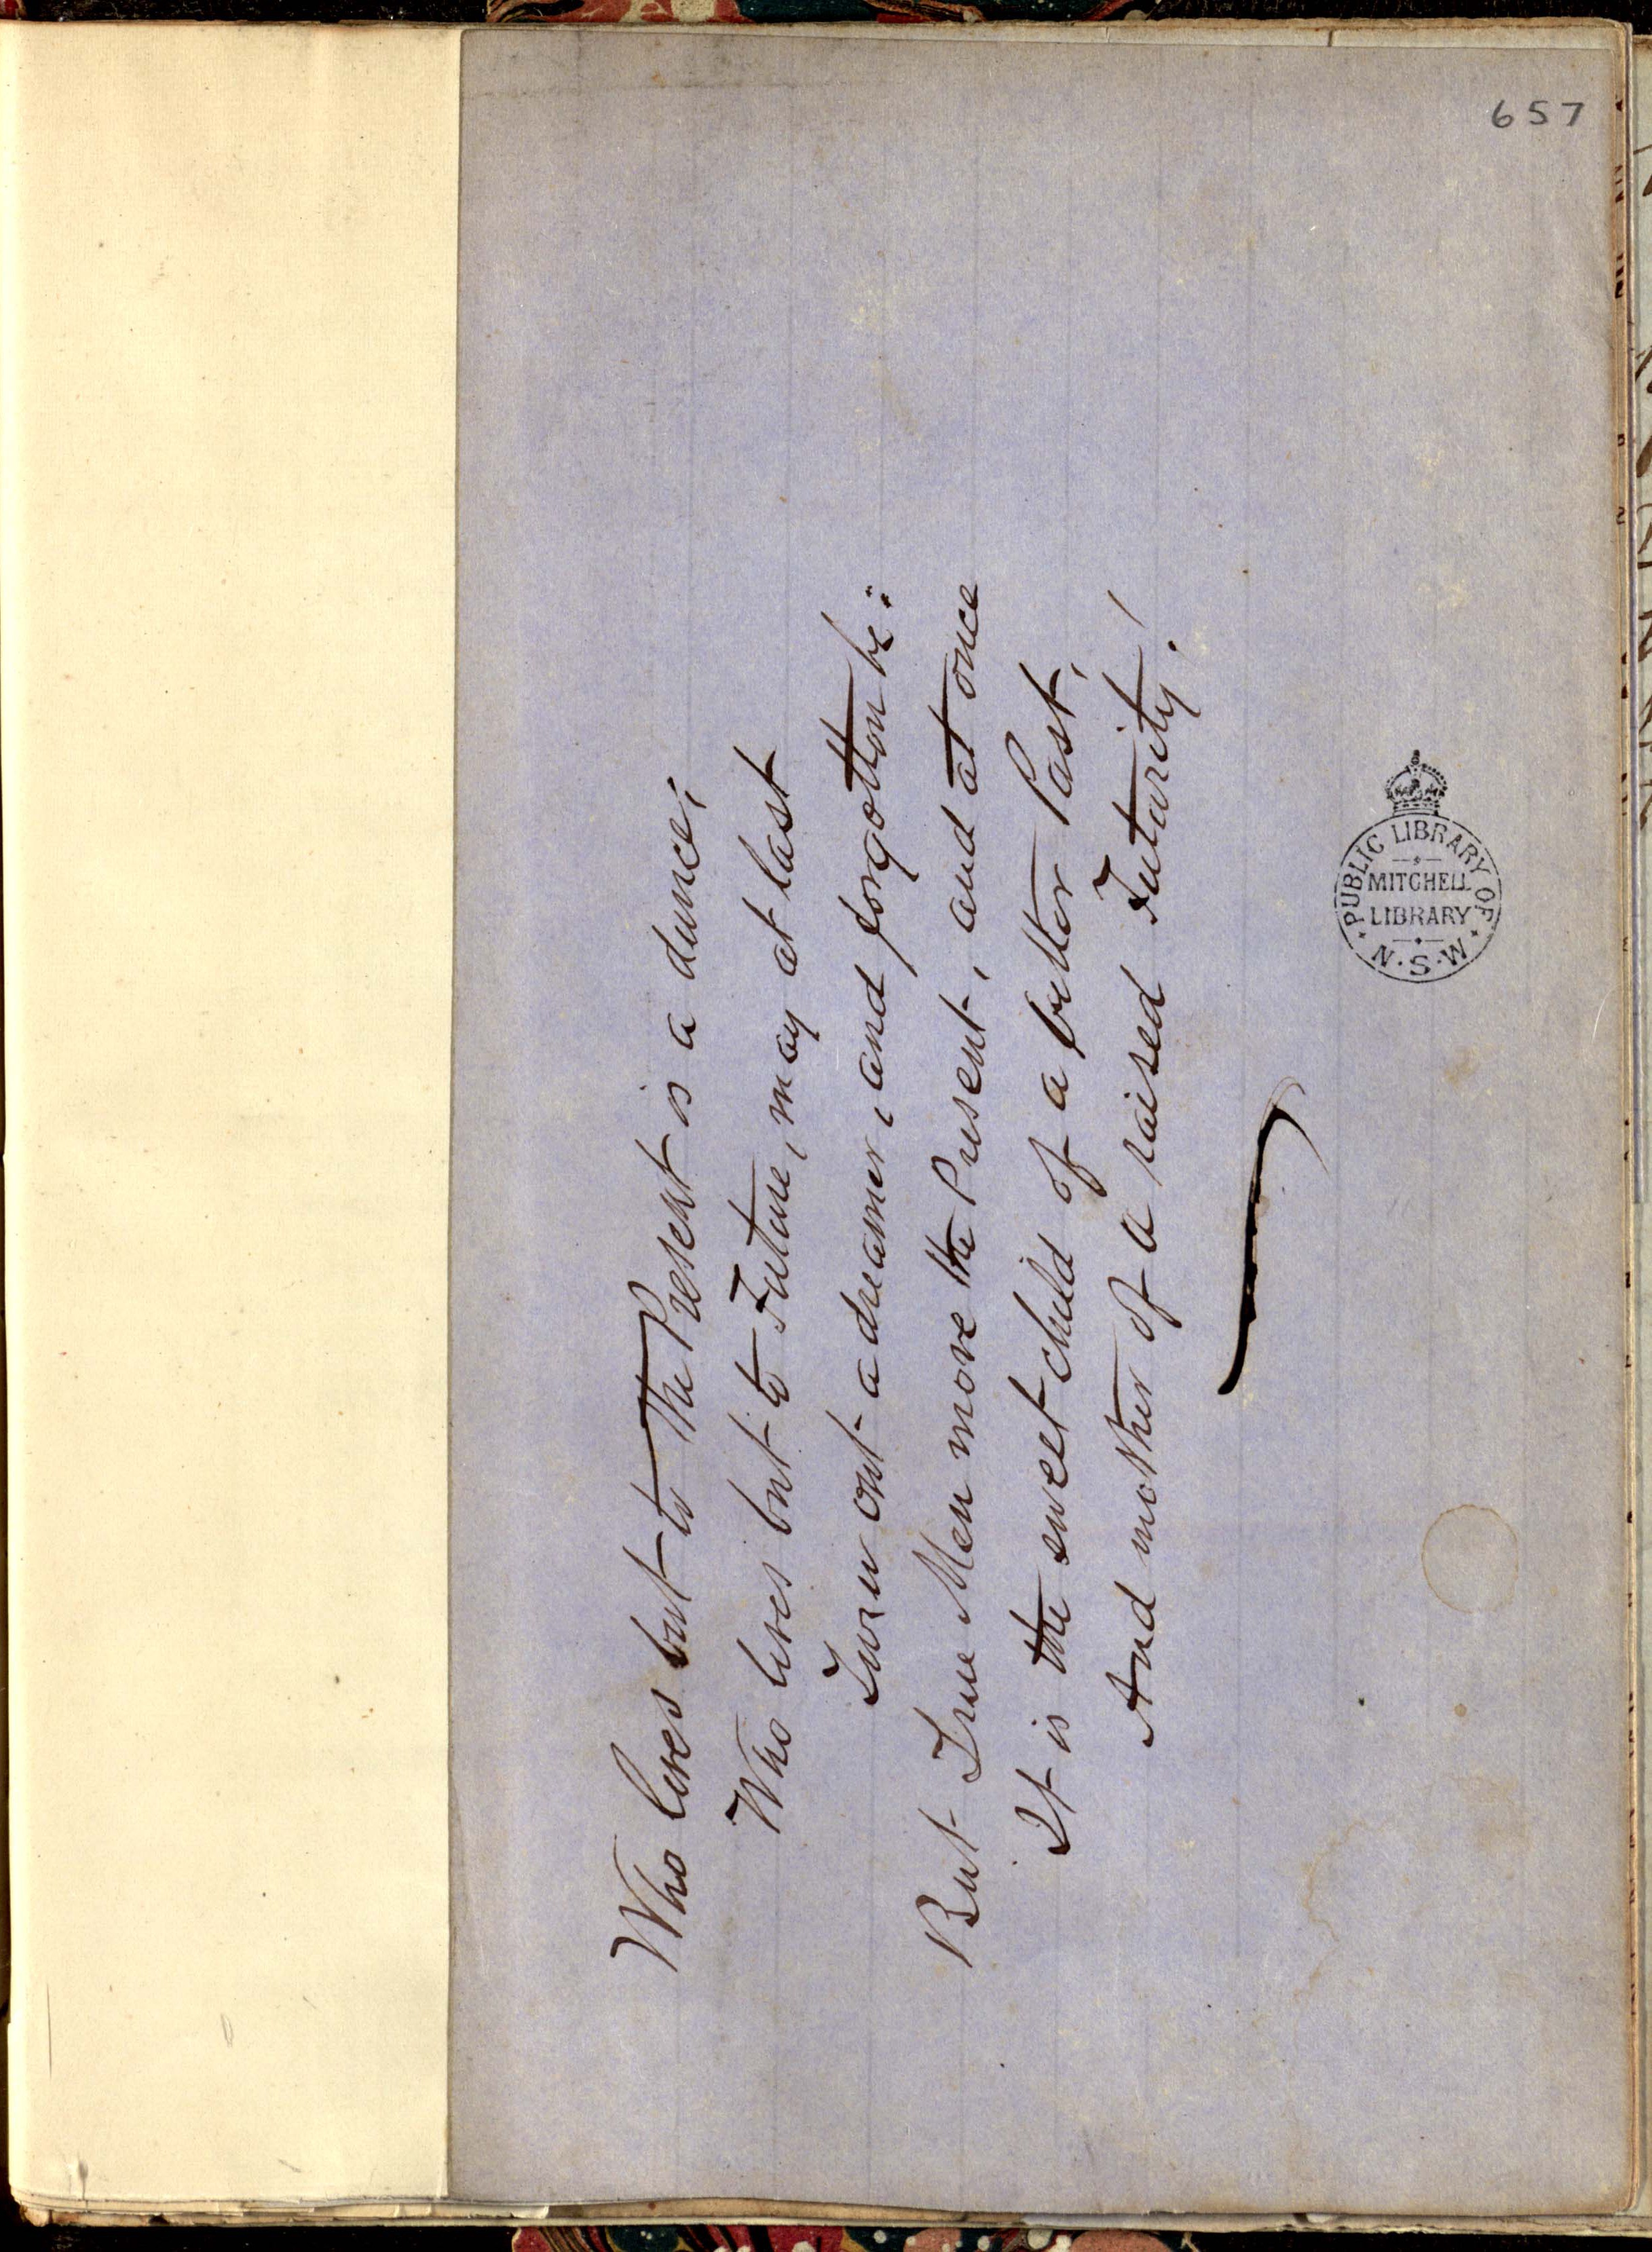 657
Who lives but to the Present is a dunce;
Who lives but to Future, may at last
Turn out a dreamer, and forgotten be:
But True Men move the Present, and at once
It is the sweet child of a better Past,
And mother of a raised Futurity!
PUBLIC LIBRARY OF
MITCHELL
LIBRARY
N.S.W.